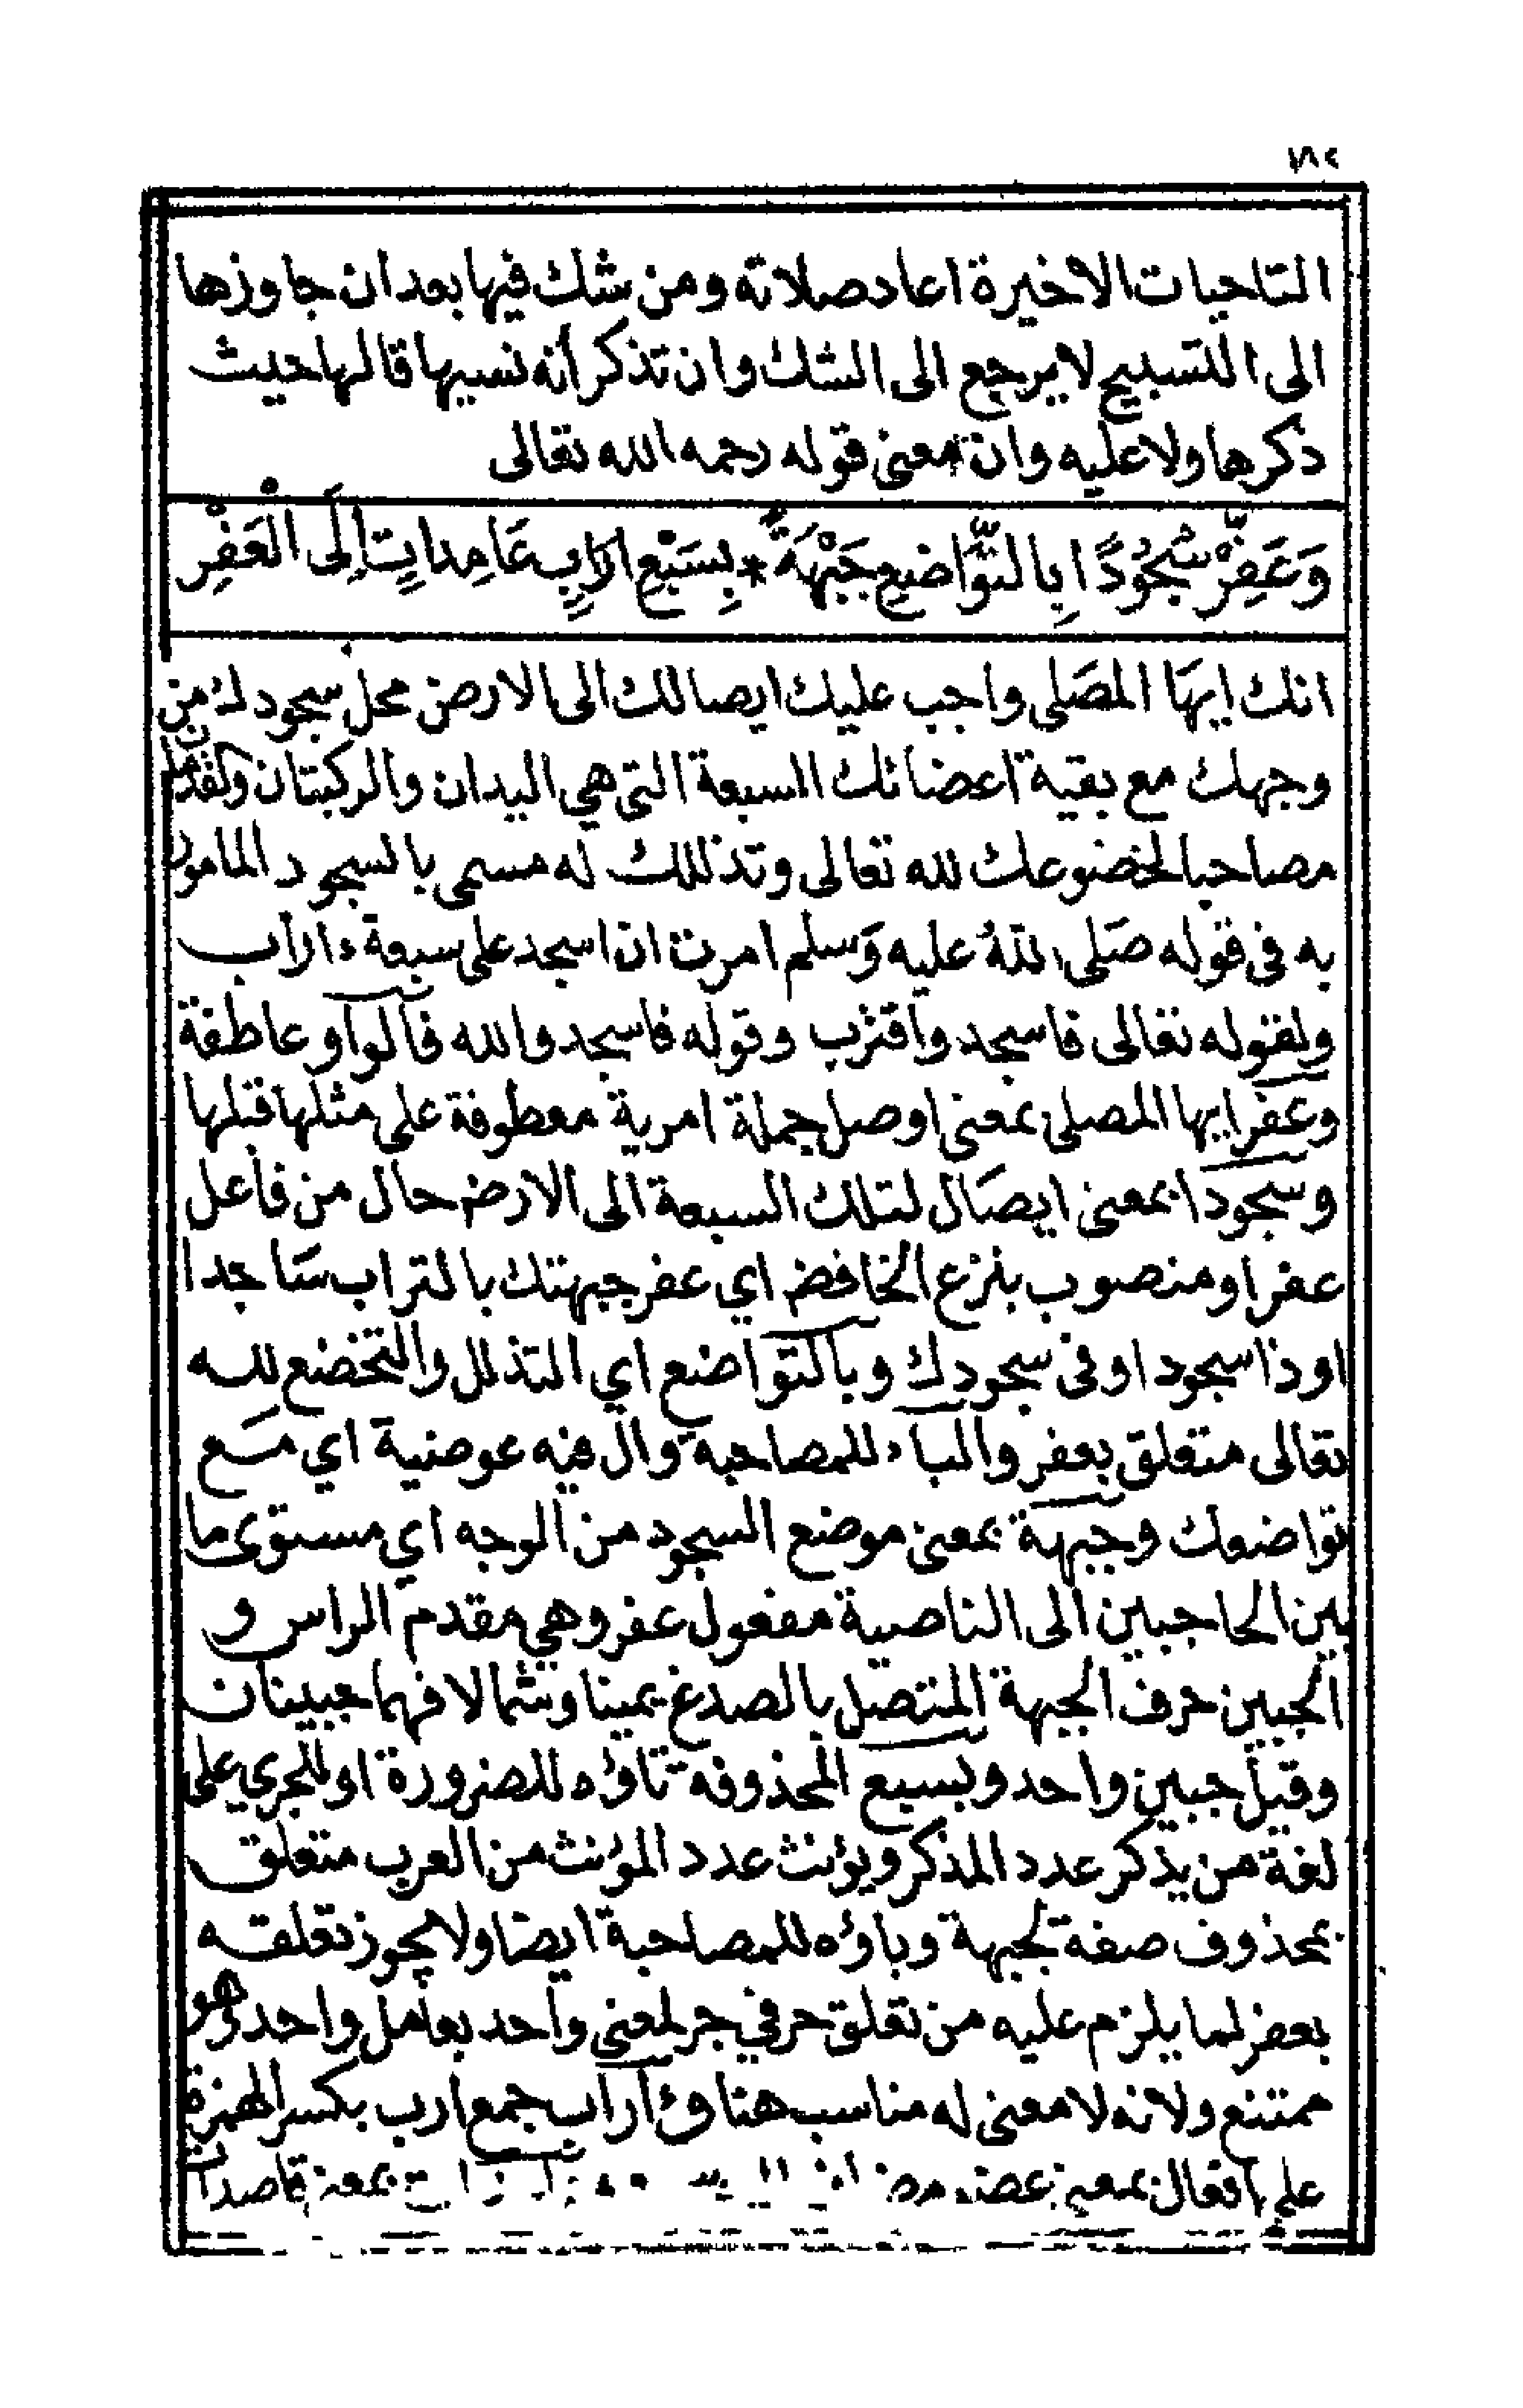 ١٨٢
التاحيات الاخيرة اعاد صلاته ومن شك فيها بعد ان جاوزها
الى التسبيح لا يرجع الى الشك وان تذكر أنه نسيها قالها حيث
ذكرها ولا عليه وان معنى قوله رحمه الله تعالى
وَعَفِّرْ سُجُودًا بِالتَّوَاضِعِ جَبْهَةً * بِسَبْعِ ارَابٍ عَامِدَاتٍ إِلَى الْعَفْرِ
انك ايها المصَلى واجب عليك ايصالك الى الارض محل سجودك من
وجهك مع بقية اعضائك السبعة التي هي اليدان والركبتان والقدمان
مصاحبا لخضوعك لله تعالى وتذللك له مسمى بالسجود المامور
به في قوله صَلى اللهُ عليه وَسلم امرت ان اسجد على سبعة ءاراب
ولقوله تعالى فاسجد واقترب وقوله فاسجدوا لله فالواو عاطفة
وعفر ايها المصلى بمعنى اوصل جملة امرية معطوفة على مثلها قبلها
وسجودا بمعنى ايصَال لتلك السبعة الى الارض حال من فاعل
عفر او منصوب بنزع الخافض اي عفر جبهتك بالتراب سَاجدا
او ذا سجود او في سجودك وبالتواضع اي التذلل والتخضع لله
تعالى متعلق بعفر والباء للمصاحبة وال فيه عوضية اي مَع
تواضعك وجبهة بمعنى موضع السجود من الوجه اي مستوى ما
بين الحاجبين الى الناصية مفعول عفر وهي مقدم الراس و
الجبين حرف الجبهة المتصل بالصدغ يمينا وشمالا فهما جبينان
وقيل جبين واحد وبسبع المحذوفه تاؤه للضرورة او للجري على
لغة من يذكر عدد المذكر ويؤنث عدد المؤنث من العرب متعلق
بمحذوف صفة لجبهة وباؤه للمصاحبة ايضا ولا يجوز تعلقه
بعفر لما يلزم عليه من تعلق حرفي جر لمعنى واحد بعامل واحد وهو
ممتنع ولانه لا معنى له مناسب هنا وءاراب جمع ارب بكسر الهمزة
على افعال بمعنى عضو بمعنى قاصدات